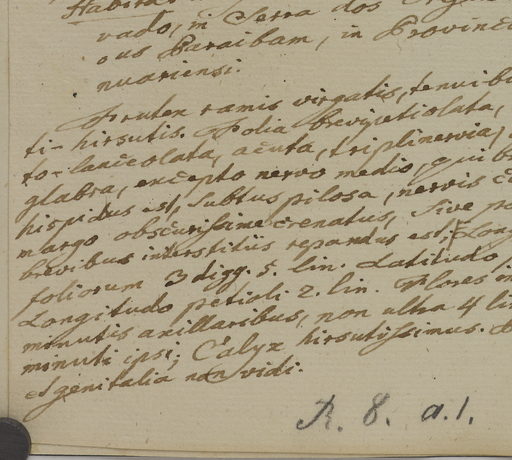 Habitat
vado, in Serra dos Orga
ous Paraibam, in Provinci
nuariensi.
Frutex ramis virgatis, tenuibu
ti-hirsutis. Folia brevipetiolata,
to-lanceolata, acuta, triplinervia,
glabra, excepto nervo medio, qui b
hispidus est, subtus pilosa, nervis c
margo obscurissime crenatus, sive po
brevibus interstitiis repandus est; Long
foliorum 3 digg. 5. lin. Latitudo
Longitudo petioli 2. lin. Flores in
minutis axillaribus, non ultra 4 lin
minuti ipsi; Calyx hirsutissimus.
et genitalia non vidi.
R. 8. a.1.